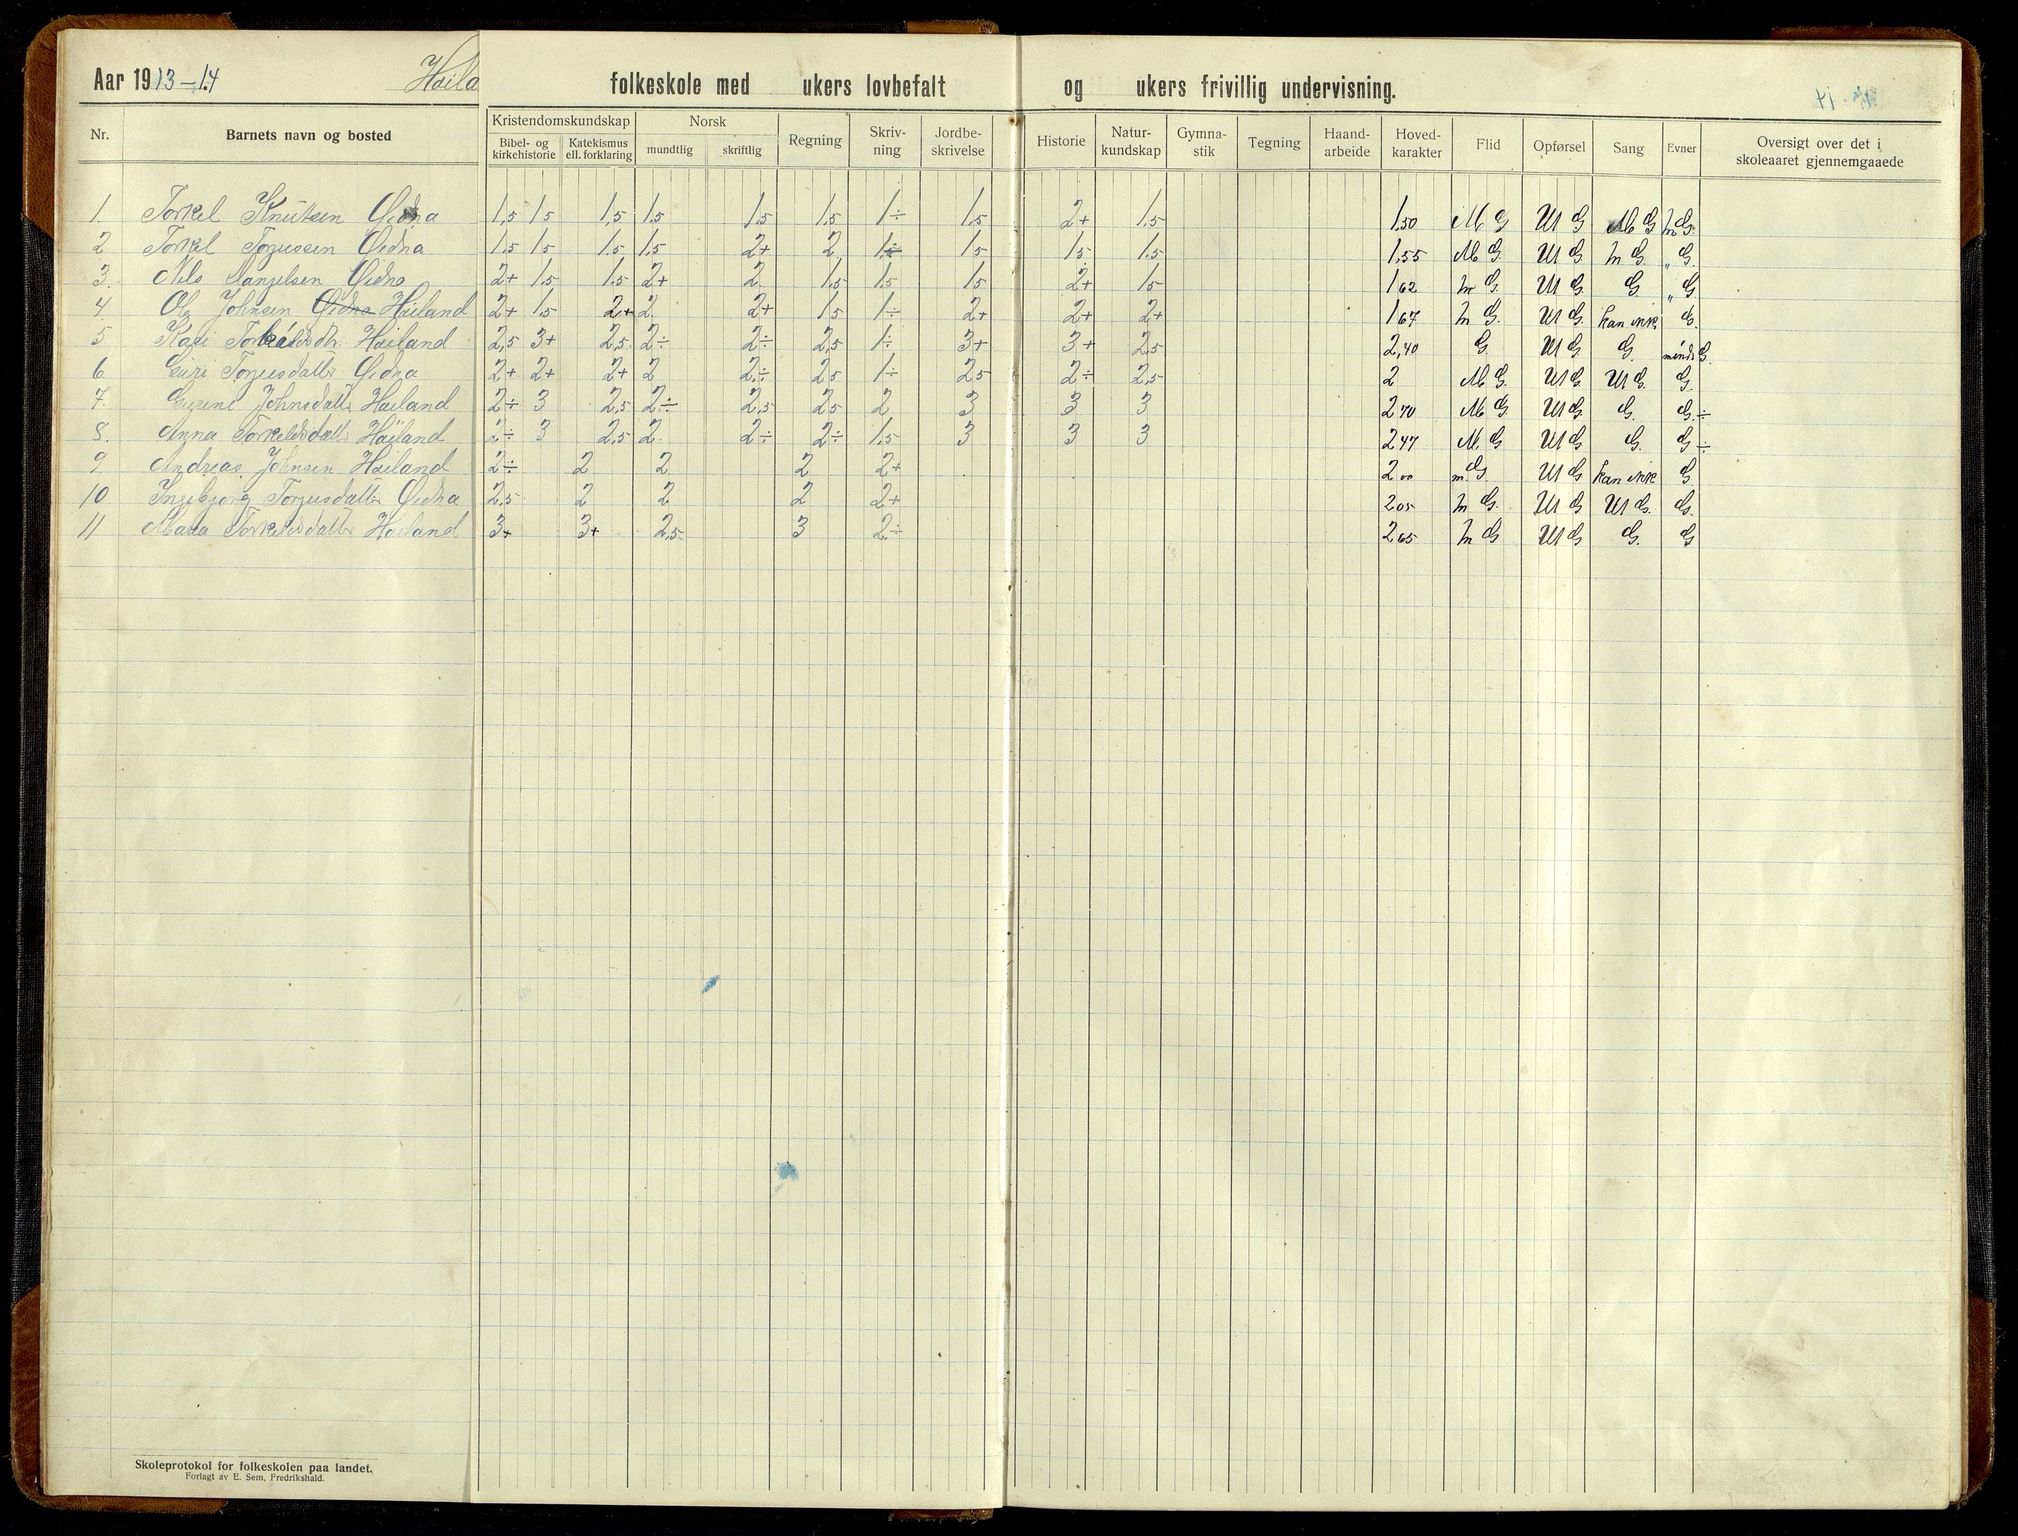 Aar 1913-14 Høila folkeskole med ukers lovbefalt og ukers frivillig undervisning.
Nr. Barnets navn og bosted Kristendomskundskap Norsk Regning Skriv-ning Jordbe-skrivelse Historie Natur-kundskap Gymna-stik Tegning Haand-arbeide Hoved-karakter Flid Opførsel Sang Evner Oversigt over det i skoleaaret gjennemgaaede
Bibel- og kirkehistorie Katekismus ell. forklaring mundtlig skriftlig
1. Torkel Knutsen Øidna 1,5 1,5 1,5 1,5 1,5 1,5 1÷ 1,5 2+ 1,5 1,50 M G Ut G M G M G.
2 Torkel Torjussen Øidna 1,5 1,5 1,5 1,5 2+ 2 1÷ 1,5 1,5 1,5 1,55 M G. Ut G M G. „ G.
3. Nils Danjelsen Øidna 2+ 1,5 1,5 2+ 2 1,5 1,5 1,5 2+ 1,5 1,62 M G. Ut G. G. „ G
4. Ole Johnsen Øidna Høiland 2+ 1,5 2+ 2. 2+ 1,5 1÷ 2+ 2+ 2+ 1,67 M G. Ut G. kan ikke G.
5 Kari Høiland 2,5 3+ 2,5 2÷ 2÷ 2,5 1÷ 3+ 3+ 2,5 2,40 G. Ut G G. G.
6. Guri Torjusdatter Øidna 2+ 2+ 2+ 2 2÷ 2,5 1÷ 2,5 2÷ 2,5 2 M G. Ut G Ut G. G.
7. Johnsdatter Høiland 2÷ 3 2,5 2÷ 2,5 2,5 2 3 3 3 2,70 M G Ut G G. G÷
8. Anna Torkelsdatter Høiland 2÷ 3 2,5 2. 2÷ 2÷ 1,5 3 3 3 2,47 M G Ut G G. G÷
9. Andreas Johnsen Høiland 2÷ 2 2 2 2+ 2,00 m G. Ut G kan ikke G.
10 Ingebjørg Torjusdatter Øidna 2,5 2 2 2 2+ 2,05 M G. Ut G Ut G. G.
11 Maria Torkelsdatter Høiland 3+ 3+ 2,5 3 2÷ 2,65 M G Ut G G. G
Skoleprotokol for folkeskolen paa landet.
Forlagt av E. Sem, Fredrikshald.